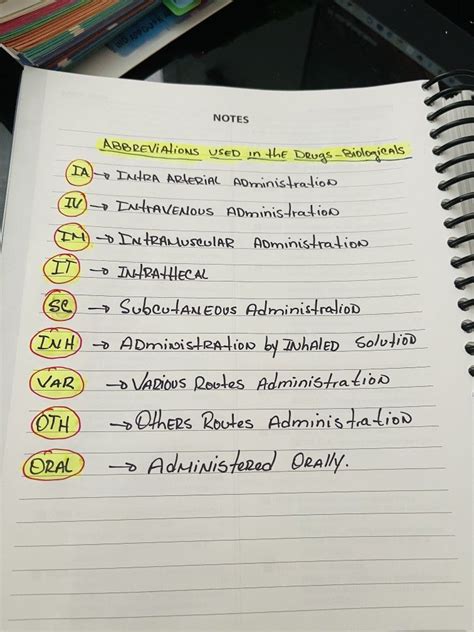 NOTES
ABBREVIATIONS USED IN the DRUGS-BIOLOGICALS
IA → INTRA ARTERIAL ADMINISTRATION
IV → INTRAVENOUS ADMINISTRATION
IM → INTRAMUSCULAR ADMINISTRATION
IT → INTRATHECAL
SC → SUBCUTANEOUS ADMINISTRATION
INH → ADMINISTRATION by INHALED SOLUTION
VAR → VARIOUS ROUTES ADMINISTRATION
OTH → OTHERS ROUTES ADMINISTRATION
ORAL → ADMINISTERED ORALLY.